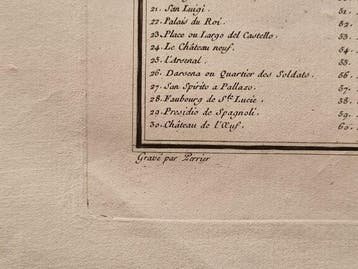 21. San Luigi. 51.
22. Palais du Roi. 52.
23. Place ou Largo del Castello. 53.
24. Le Château neuf. 54.
25. L'Arsenal. 55.
26. Darsena ou Quartier des Soldats. 56.
27. San Spirito a Pallazo. 57.
28. Faubourg de Ste Lucie. 58.
29. Presidio de Spagnoli. 59.
30. Château de l'Œuf. 60.
Gravé par Perrier